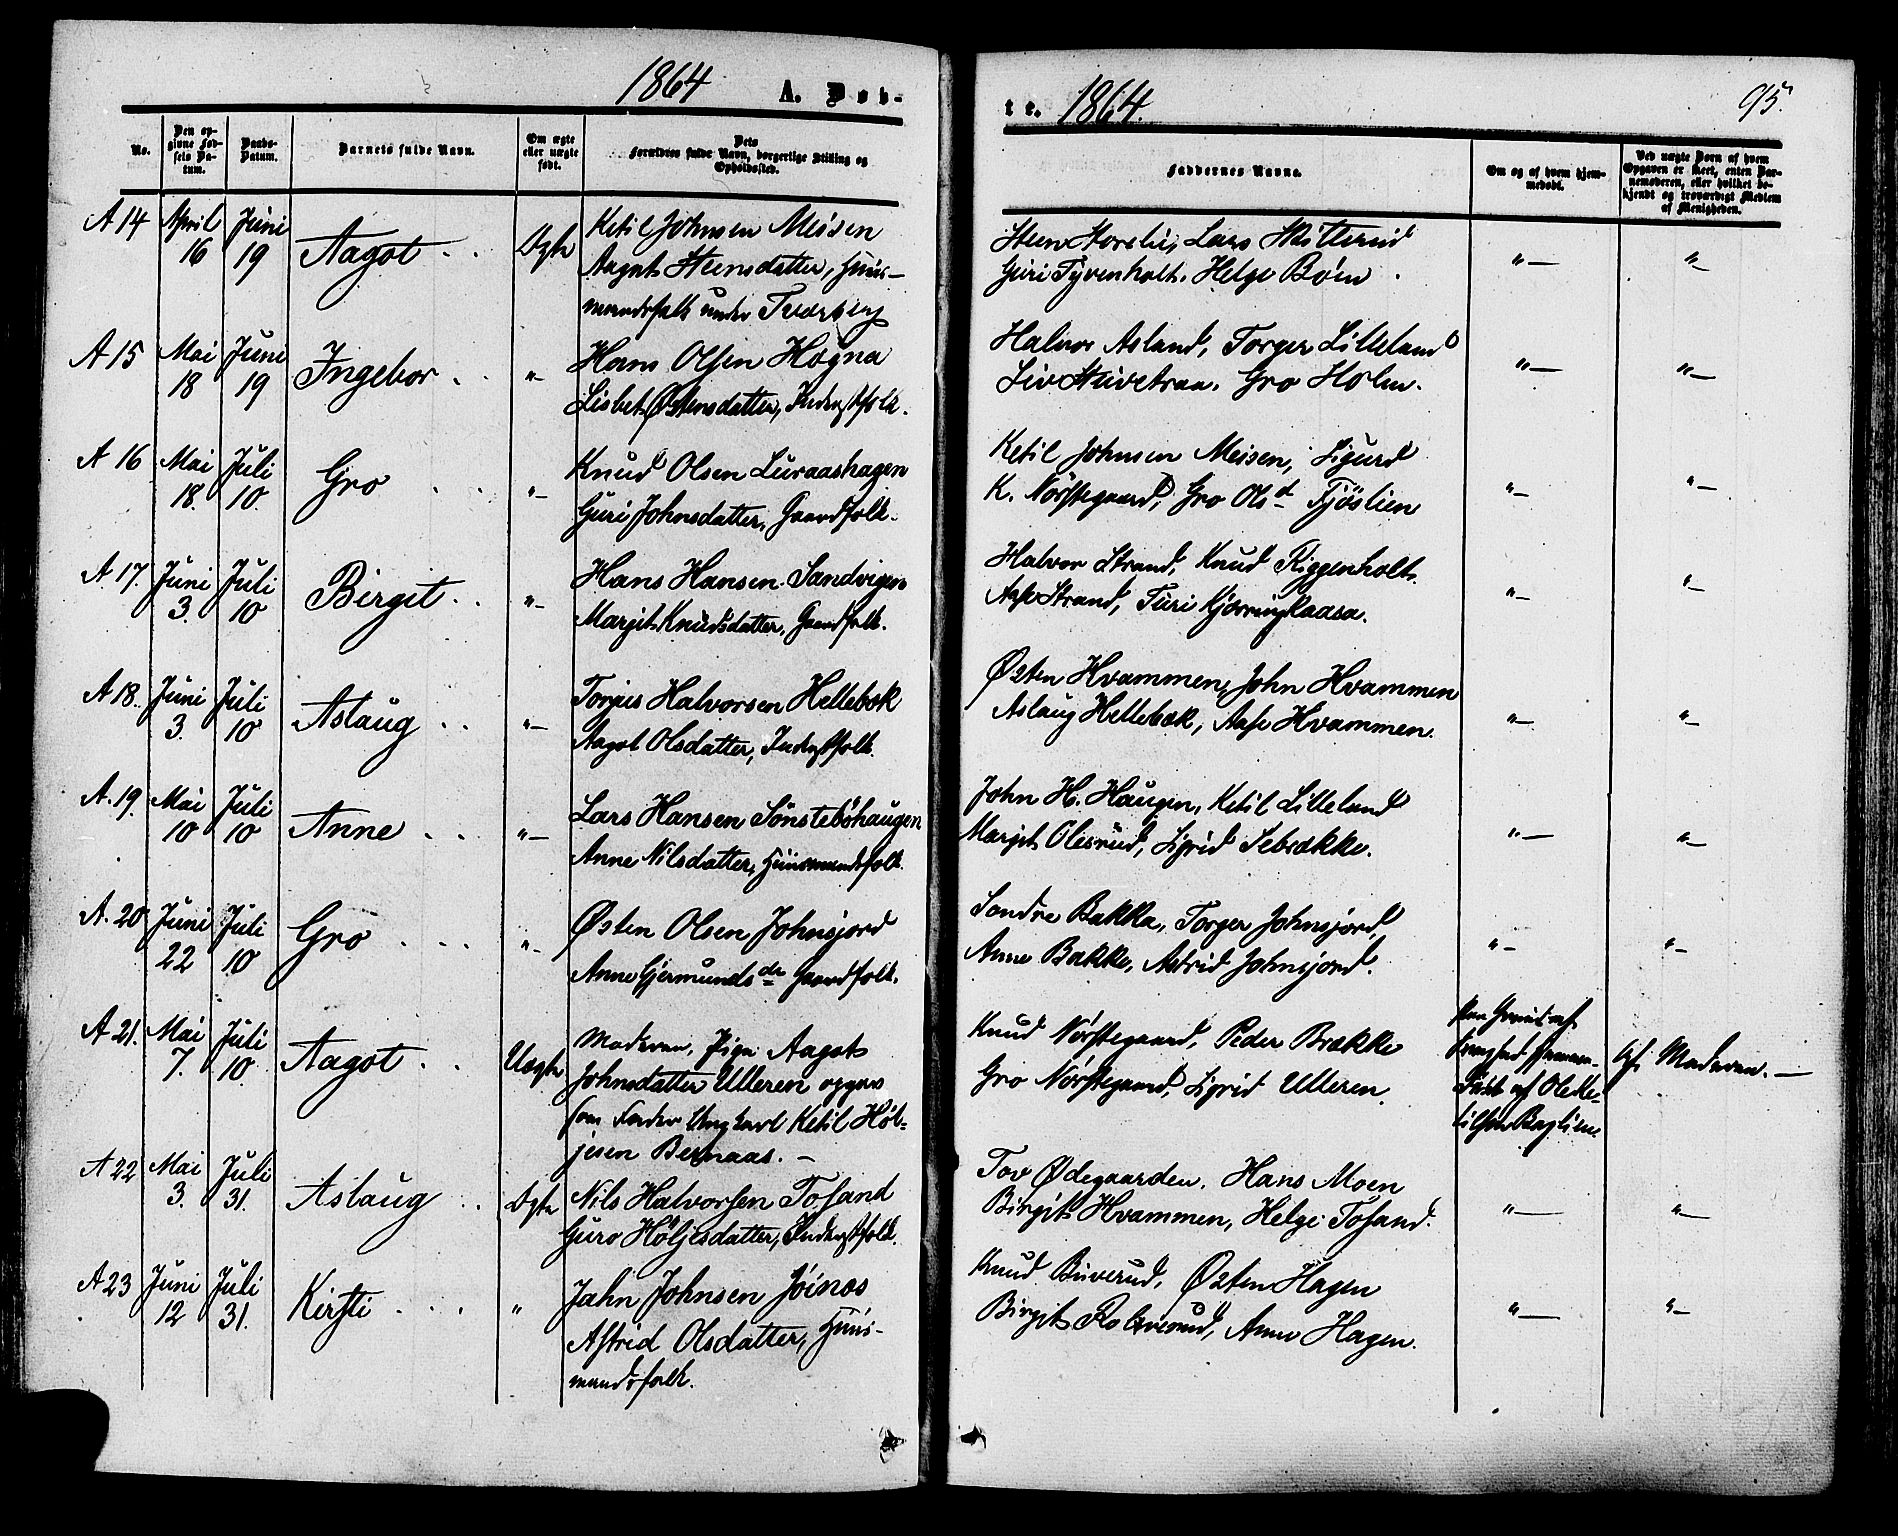 1864 A. Døb-
No. Den opgivne Fødsels Datum. Daabs-Datum. Barnets fulde Navn. Om ægte eller uægte født. Dets Forældres fulde Navn, borgerlige Stilling og Opholdssted.
A 14 April 16 Juni 19 Aagot Ægte Ketil Johnsen Meisen
Aagot Steensdatter, Huus-
mandsfolk under Tværberg
A 15 Mai 18 Juni 19 Ingebor "- Hans Olsen Høgna
Lisbet Østensdatter, Inderstfolk.
A 16 Mai 18. Juli 10. Gro "- Knud Olsen Luraashagen
Guri Johnsdatter, Gaardfolk.
A 17. Juni 3. Juli 10 Birgit "- Hans Hansen Sandvigen
Margit Knudsdatter, Gaardfolk.
A 18. Juni 3. Juli 10 Aslaug "- Torjus Halvorsen Hellebæk
Aagot Olsdatter, Inderstfolk.
A. 19. Mai 10 Juli 10 Anne "- Lars Hansen Sönstebøhaugen
Anne Nilsdatter, Huusmandsfolk.
A. 20 Juni 22 Juli 10 Gro "- Østen Olsen Johnsjord
Anne Gjermundsdr Gaardfolk.
A 21. Mai 7. Juli 10. Aagot Uægte Moderen, Pige Aagot
Johnsdatter Ulleren opgav
som Fader Ungkarl Ketil Høl-
jesen Bernaas. -
A 22 Mai 3. Juli 31. Aslaug Ægte Nils Halvorsen Tosand
Guro Höljesdatter, Inderstfolk.
A 23 Juni 12 Juli 31. Kirsti " Jahn Johnsen Jóinas
Astrid Olsdatter, Huus-
mandsfolk.
te. 1864. 95.
Faddernes Navne. Om og af hvem hjemmedøbt. Ved uægte Børn af hvem Opgaven er skeet, enten Barnemoderen, eller hvilket bekjendt og troværdigt Medlem af Menigheden.
Steen Storelie, Lars Skitterud
Guri Tyvenholt. Helge Böen "- "-
Halvor Asland, Torger Lilleland
Liv Stivetraa. Gro Holm. "- "-
Ketil Johnsen Meisen, Sigurd
K. Nørstegaard, Gro Olsd Fjöslien "- "-
Halvor Strand, Knud Riggenholt.
Aase Strand, Turi Kjærringkaasa. "- "-
Østen Hvammen, John Hvammen
Aslaug Hellebæk, Aase Hvammen. "- "-
John H. Haugen, Ketil Lilleland
Margit Olesrud, Sigrid Sebrække. "- "-
Sondre Bakka, Torger Johnsjord,
Anne Bakke, Astrid Johnsjord. "- "-
Knud Nørstegaard, Peder Brække
Gro Nørstegaard, Sigrid Ulleren. af Ole Ke-
tilsen Baglien. Af Moderen. -
Tov Ødegaarden. Hans Moen
Birgit Hvammen, Helge Tosand. "- "-
Knud Buverud, Østen Hagen
Birgit Anne Hagen. "- "-